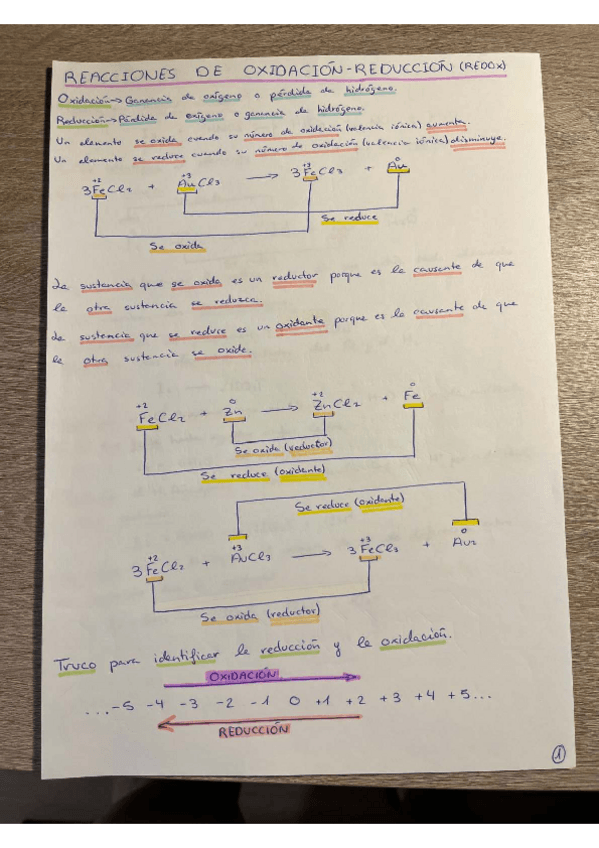 REACCIONES DE OXIDACIÓN-REDUCCIÓN (REDOX)
Oxidación→ Ganancia de oxígeno o pérdida de hidrógeno.
Reducción→ Pérdida de oxígeno o ganancia de hidrógeno.
Un elemento se oxida cuando su número de oxidación (valencia iónica) aumenta.
Un elemento se reduce cuando su número de oxidación (valencia iónica) disminuye.
+2 +3 +3 0
3FeCl2 + AuCl3 → 3FeCl3 + Au
Se reduce
Se oxida
La sustancia que se oxida es un reductor porque es la causante de que
la otra sustancia se reduzca.
La sustancia que se reduce es un oxidante porque es la causante de que
la otra sustancia se oxide.
+2 0 +2 0
FeCl2 + Zn → ZnCl2 + Fe
Se oxida (reductor)
Se reduce (oxidante)
Se reduce (oxidante)
+2 +3 +3 0
3FeCl2 + AuCl3 → 3FeCl3 + Au2
Se oxida (reductor)
Truco para identificar la reducción y la oxidación.
OXIDACIÓN
...-5 -4 -3 -2 -1 0 +1 +2 +3 +4 +5...
REDUCCIÓN
1